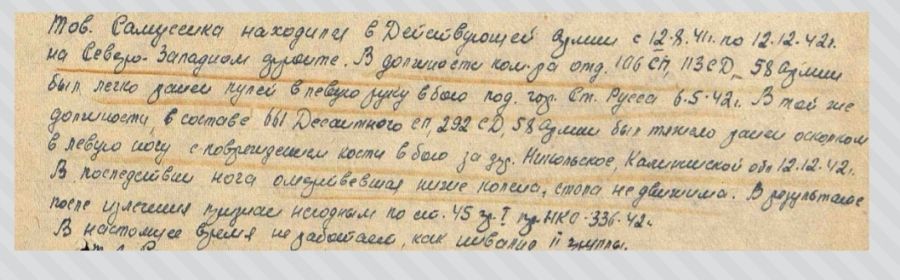 Тов. Самуссика находился в Действующей Армии с 12.8.41г. по 12.12.42г.
на Северо-Западном фронте. В должности ком-ра отд. 106 СП, 113 СД, 58 Армии
был легко ранен пулей в левую руку в бою под гор. Ст. Русса 6.5.42г. В той же
должности, в составе 661 Десантного сп, 292 СД, 58 Армии был тяжело ранен осколком
в левую ногу с повреждением кости в бою за дер. Никольское, Калининской обл 12.12.42г.
В последствии нога омертвевшая ниже колена, стопа не движима. В результате
после излечения признан негодным по ст. 45 гр. I пр. НКО-336-42г.
В настоящее время не работает, как инвалид II группы.